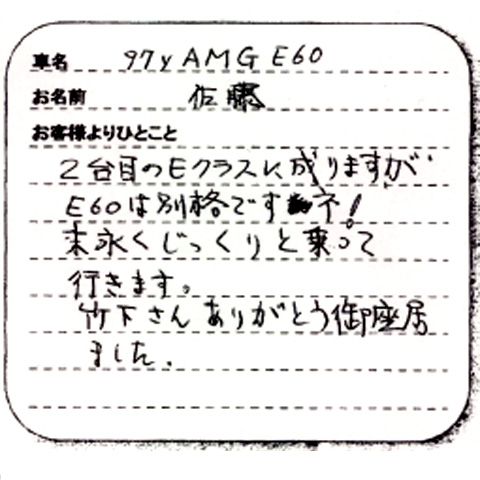 車名 97y AMG E60
お名前 佐藤
お客様よりひとこと
2台目のEクラスに成りますが
E60は別格ですネ!
末永くじっくりと乗って
行きます。
竹下さん ありがとう御座居
ました.